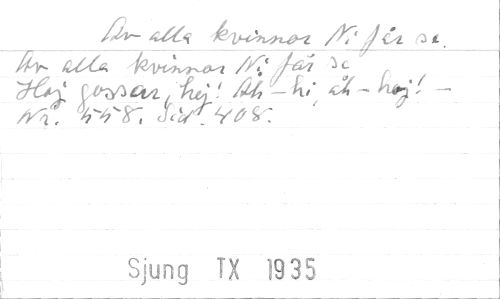 Av alla kvinnor Ni får se.
Av alla kvinnor Ni får se
Hoj gossar, hej! Åh – hi, åh – hoj! –
Nr. 558. Sid. 408.
Sjung TX 1935